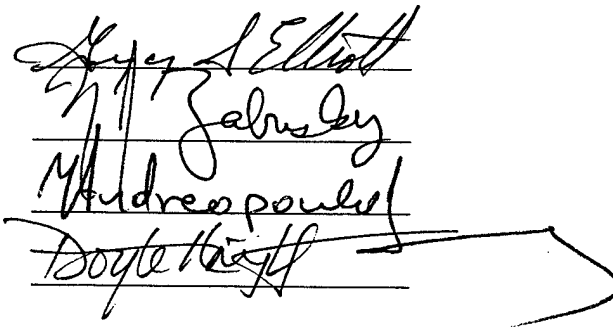 S Elliott
Zabusky
Andreopoulos
Doyle Knight